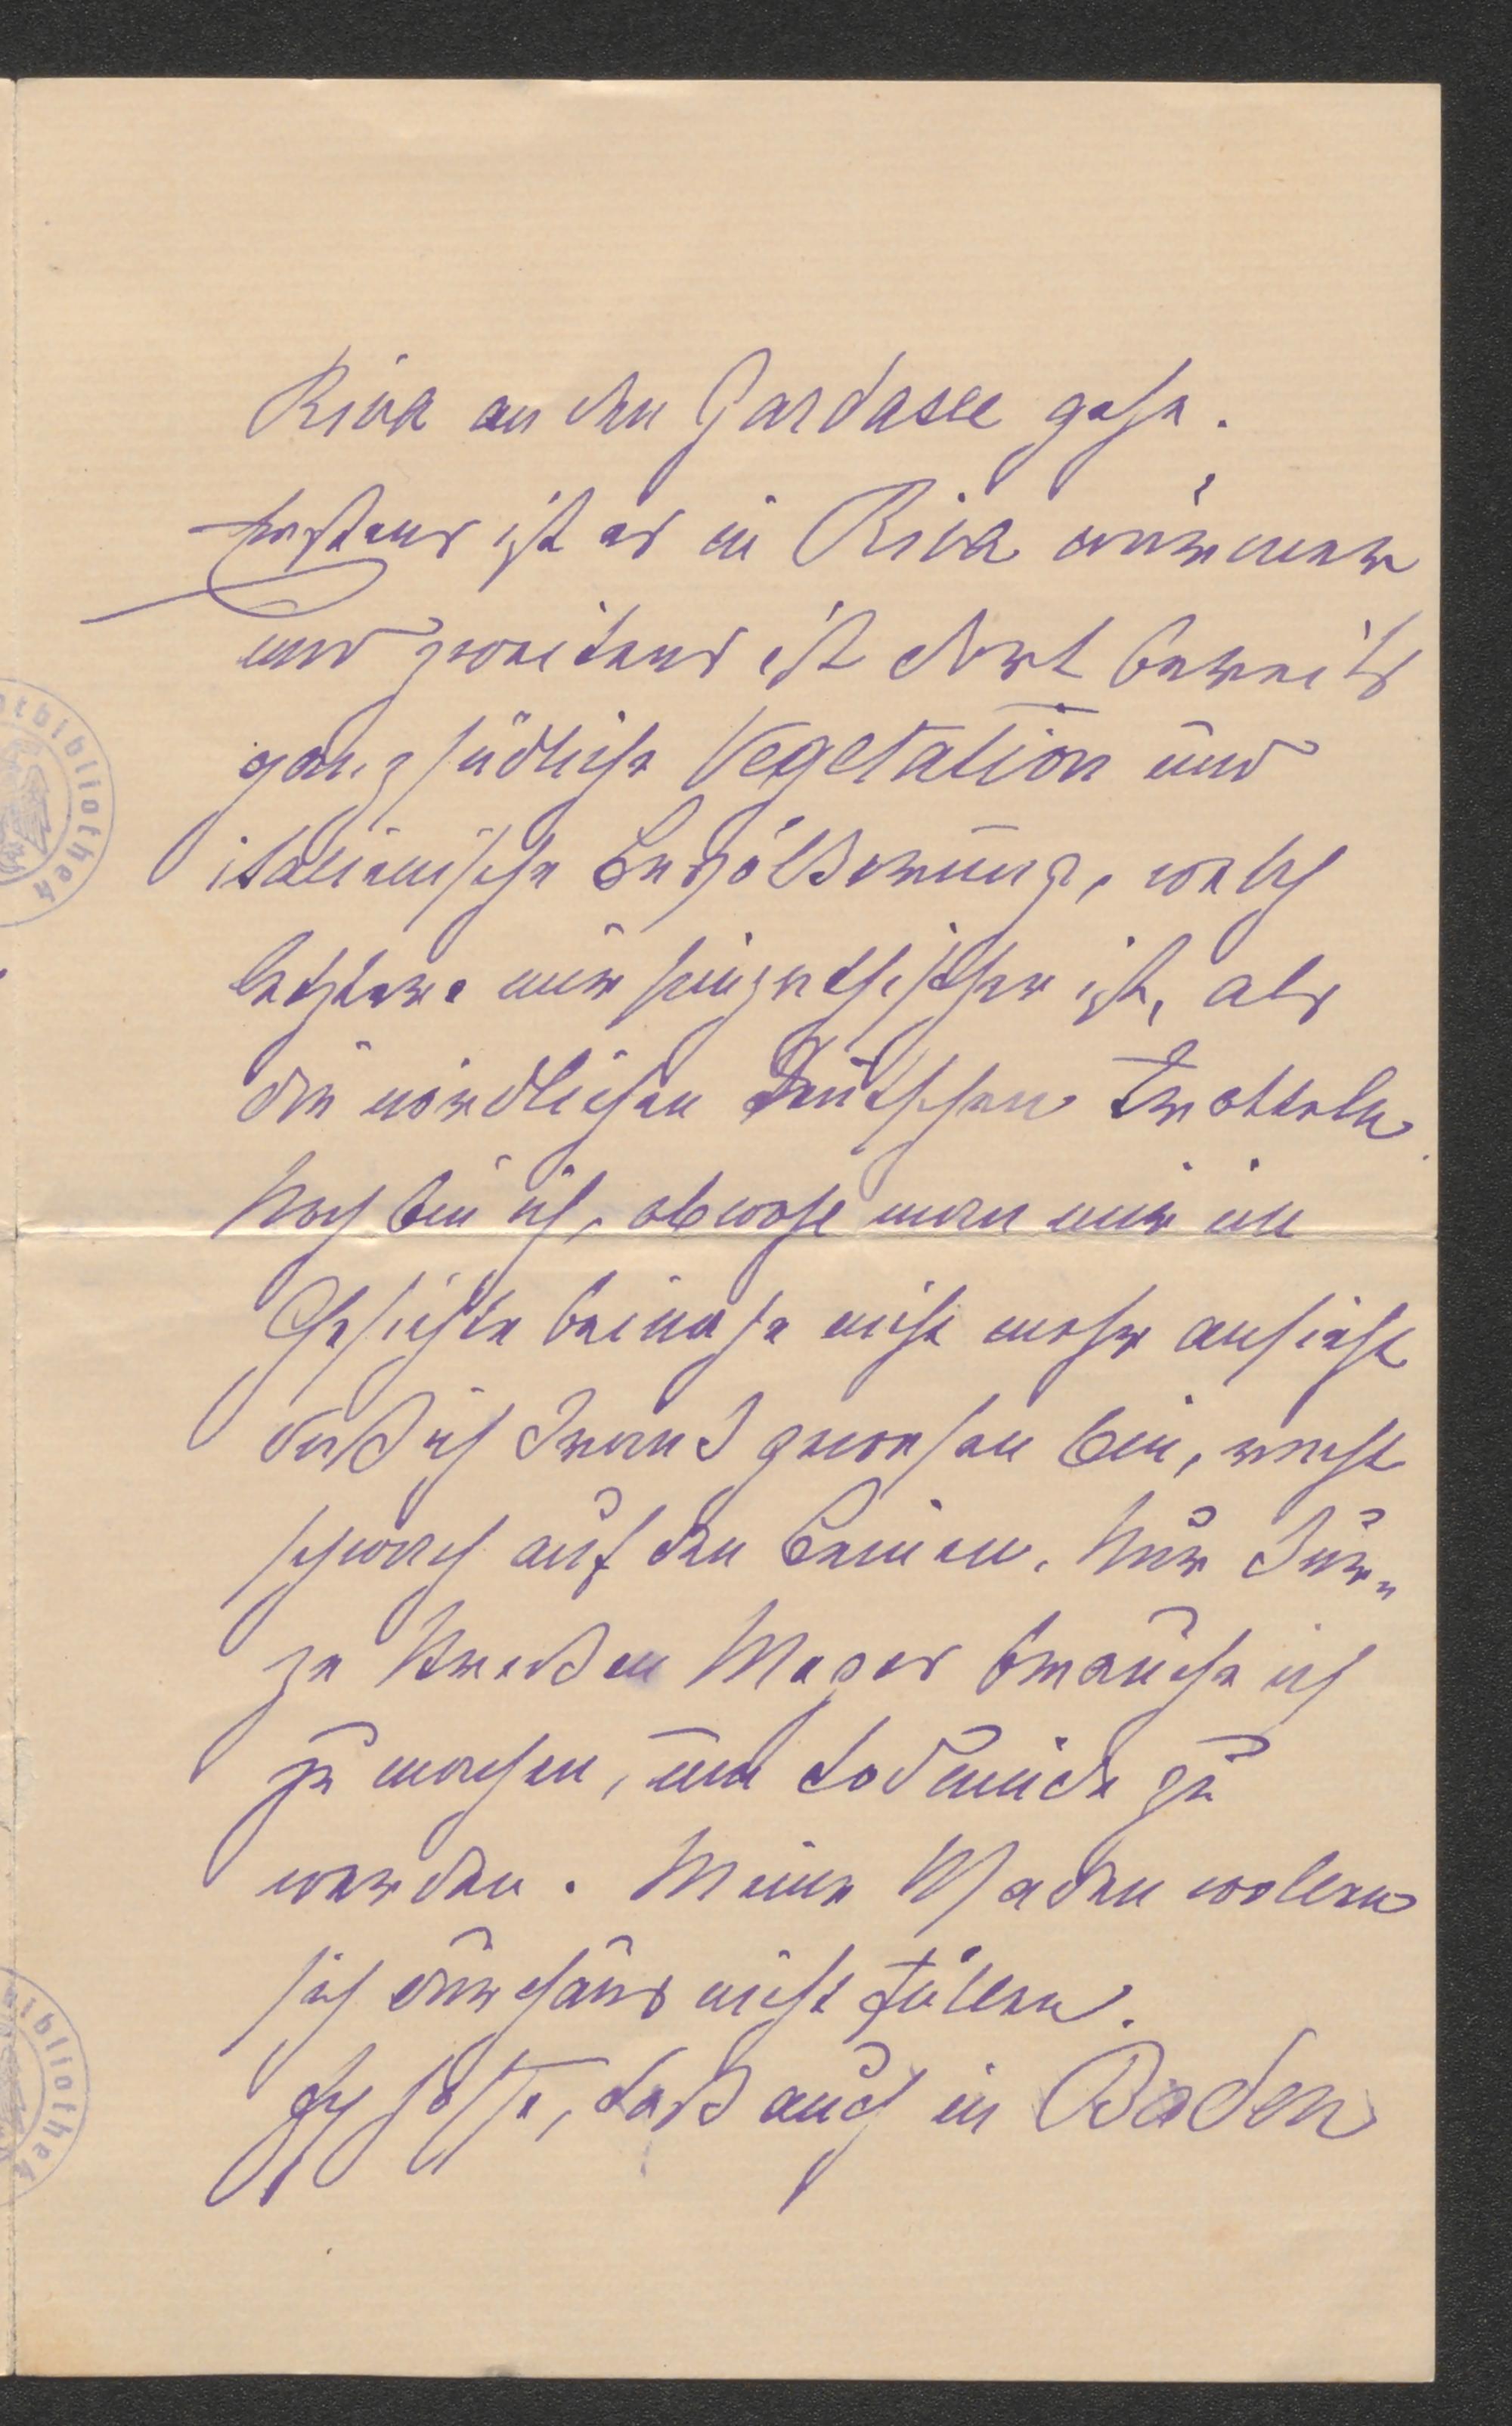 Riva an den Gardasee gehe.
Erstens ist es in Riva wärmer
und zweitens ist dort bereits
ganz südliche Vegetation und
italienische Bevölkerung, welch
letztere mir sympathischer ist, als
die nördlichen deutschen Trotteln.
Noch bin ich, obwohl man mir im
Gesichte beinahe nicht mehr ansieht
daß ich krank gewesen bin, recht
schwach auf den Beinen. Nur kur„
ze Strecken Weges brauche ich
zu machen, um todmüde zu
werden. Meine Waden wollen
sich durchaus nicht füllen.
Ich hoffe, daß auch in Baden
bibliothek
bibliothek